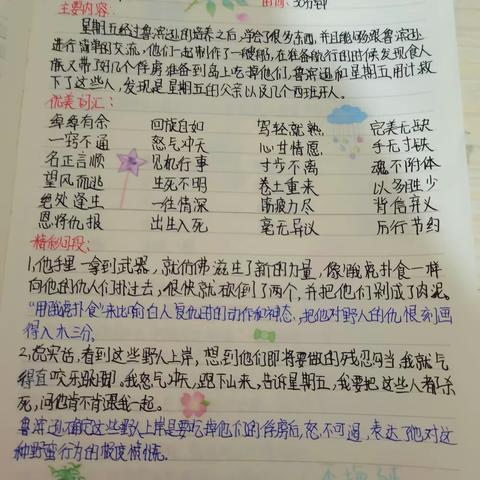 主要内容: 时间:30分钟
星期五经过鲁滨逊的培养之后,学会了很多东西,并且能够跟鲁滨逊
进行简单的交流,他们一起制作了一艘船,在准备航行的时候发现食人
族又带了好几个俘房准备到岛上吃掉他们,鲁滨逊和星期五用计救
下了这些人,发现是星期五的父亲以及几个西班牙人。
优美词汇:
绰绰有余 回旋自如 驾轻就熟 完美无缺
一窍不通 怒气冲天 心甘情愿 手无寸铁
名正言顺 见机行事 寸步不离 魂不附体
望风而逃 生死不明 卷土重来 以多胜少
绝处逢生 一往情深 筋疲力尽 背信弃义
恩将仇报 出生入死 毫无异议 厉行节约
精彩回段:
1、他手里一拿到武器,就仿佛滋生了新的力量,像饿虎扑食一样
向他的仇人们扑过去,很快就砍倒了两个,并把他们剁成了肉泥。
"用饿虎扑食"来比喻白人复仇时的动作和神态,把他对野人的仇恨刻画
得入木三分。
2、说实话,看到这些野人上岸,想到他们即将要做的残忍勾当,我就气
得直咬牙跺脚。我怒气冲天,跑下山来,告诉星期五,我要把这些人都杀
死,问他肯不肯跟我一起。
鲁滨逊确定这些野人上岸是要吃掉他们的俘房后,怒不可遏,表达了他对这
种野蛮行为的极度愤慨。